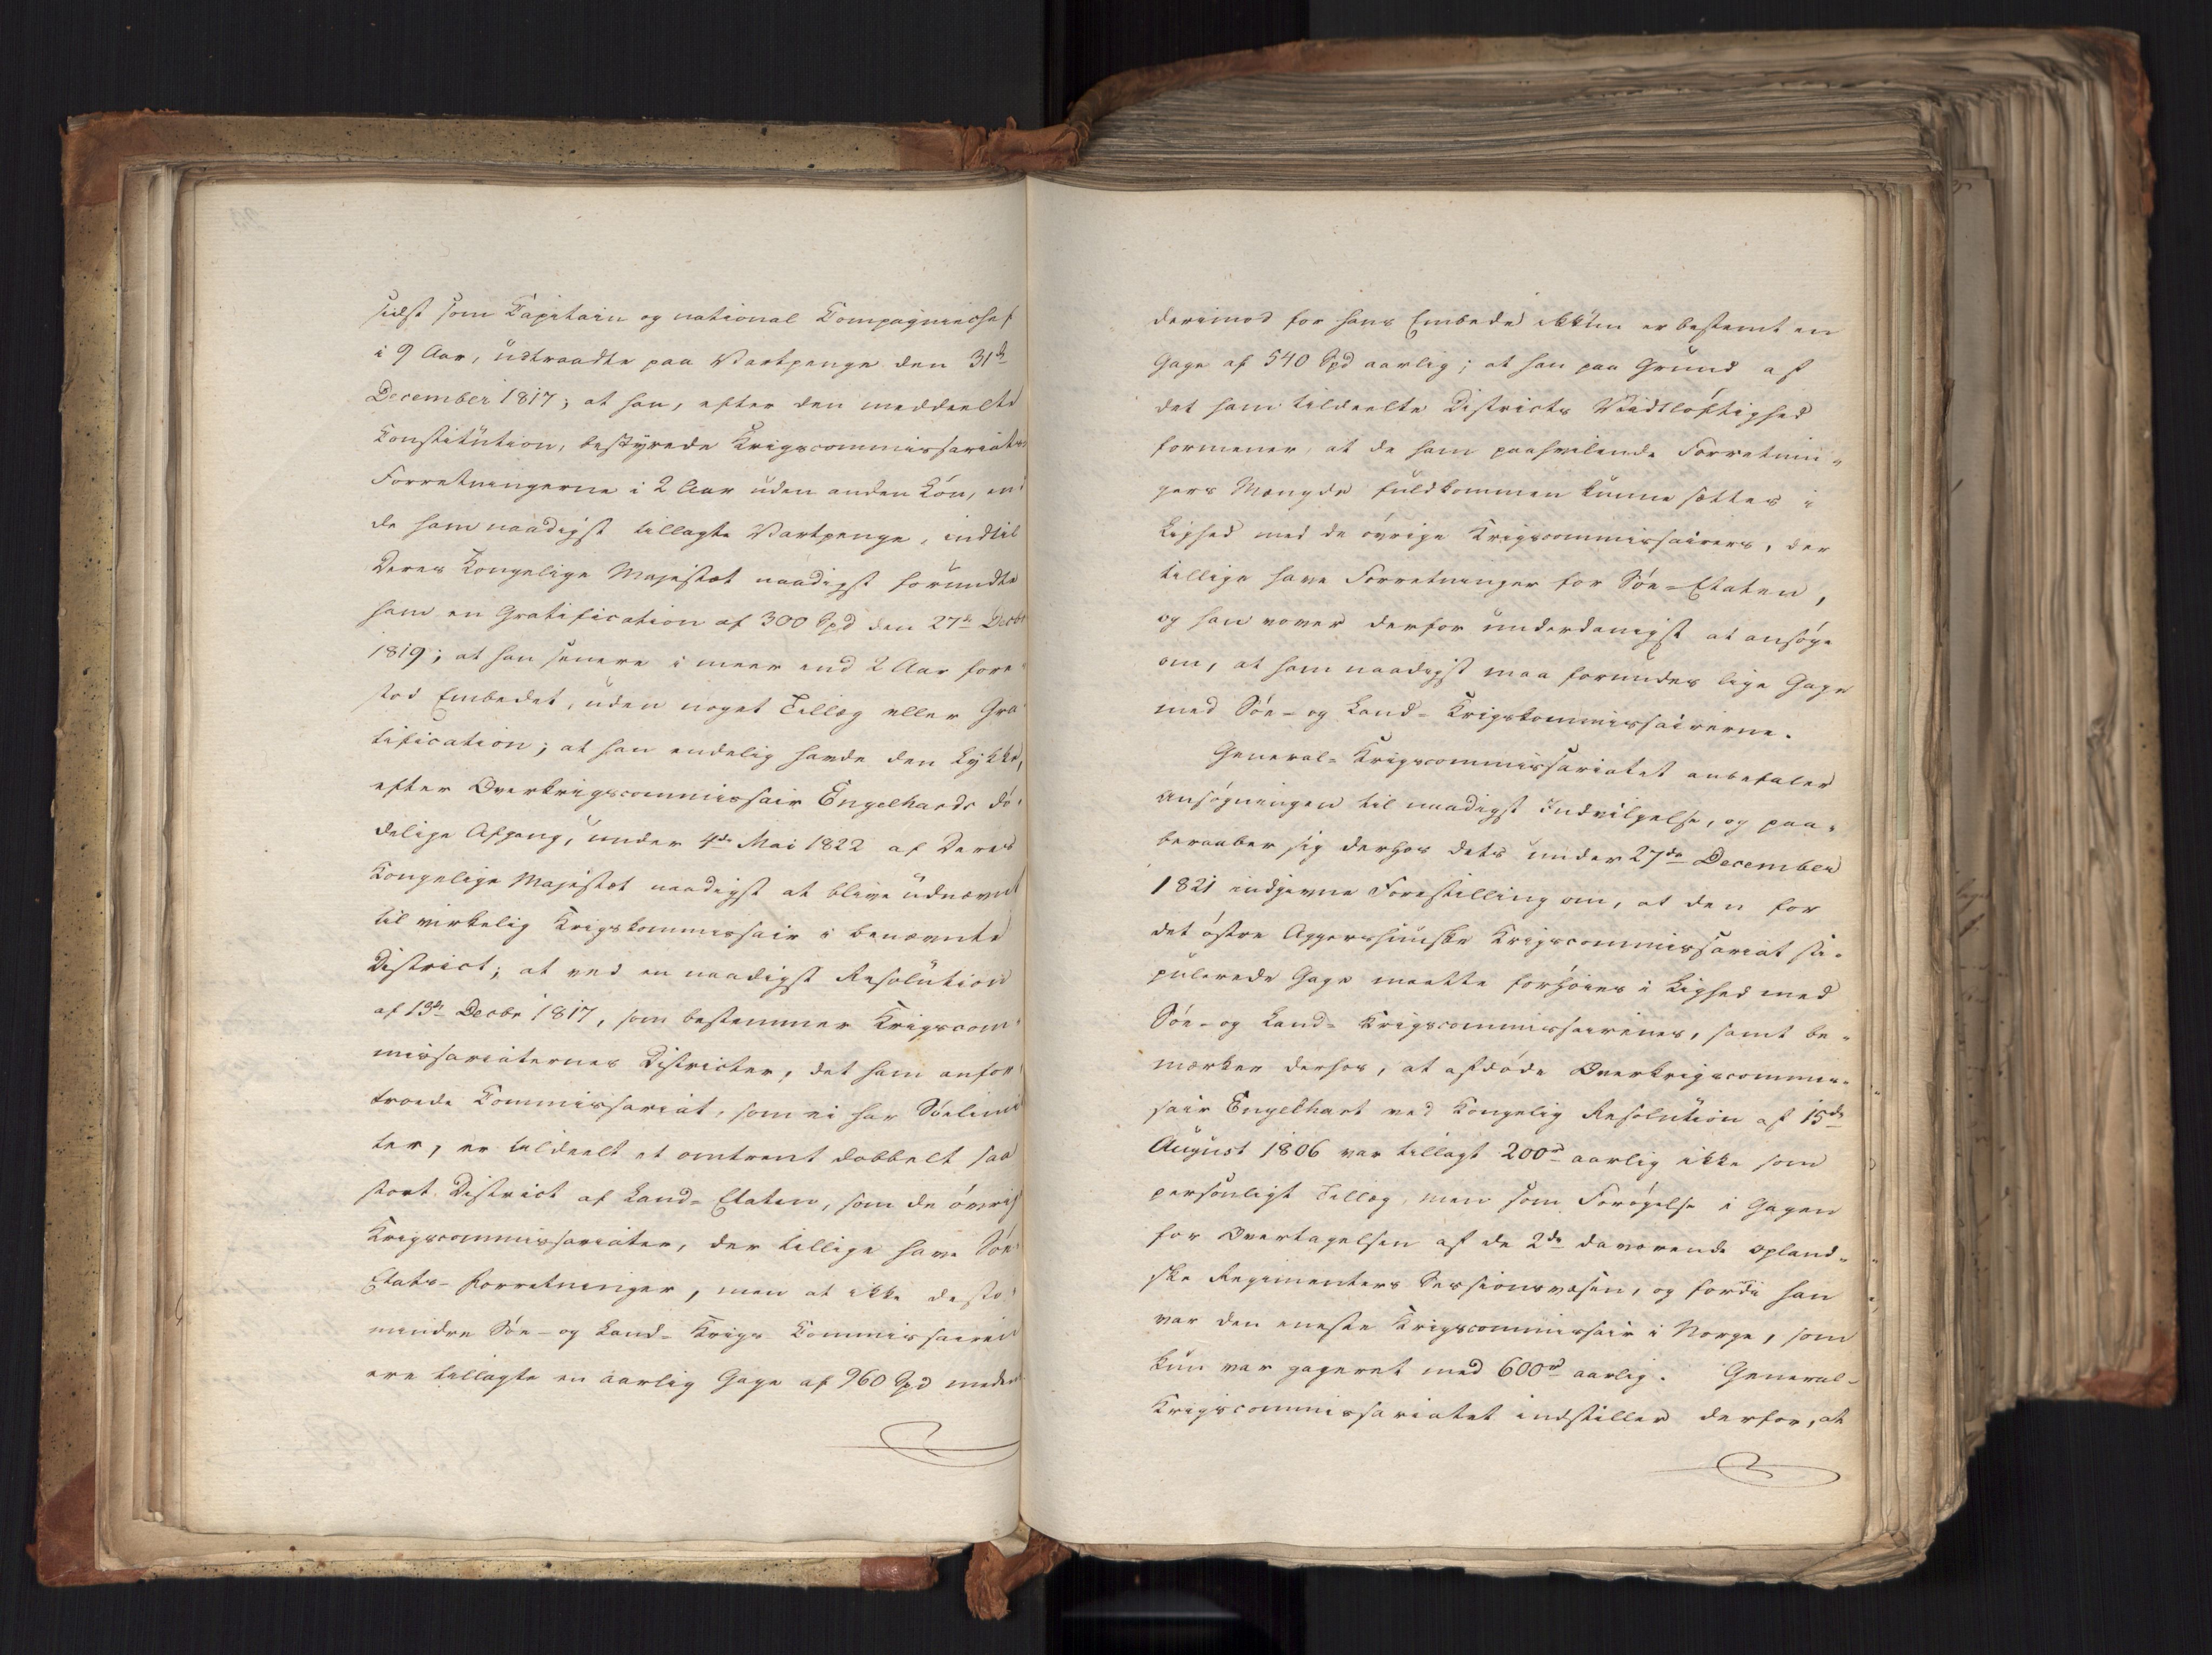 sidst som Capitain og national Compagniechef
i 9 Aar, udtraadte paa Vartpenge den 31te
December 1817; at han, efter den meddeelte
Constitution, bestyrede Krigscommissariats
Forretningerne i 2 Aar uden anden Løn, end
de ham naadigst tillagte Vartpenge, indtil
Deres Kongelige Majestæt naadigst forundte
ham en Gratification af 300 Spd den 27de Decbr
1819; at han senere i meer end 2 Aar fore-
stod Embedet, uden noget Tillæg eller Gra-
tification; at han endelig havde den Lykke,
efter Overkrigscommissair Engelhardts dø-
delige Afgang, under 4de Mai 1822 af Deres
Kongelige Majestæt naadigst at blive udnævnt
til virkelig Krigskommissair i benævnte
District; at ved en naadigst Resolution
af 13de Decbr 1817, som bestemmer Krigscom-
missariaternes Districter, det ham anfor-
troede Commissariat, som ei har Søelimi-
ter, er tildeelt et omtrent dobbelt saa
stort District af Land-Etaten, som de øvrige
Krigscommissariater, der tillige have Søe-
Etats-Forretninger, men at ikke desto-
mindre Søe- og Land-Krigs Commissairer
ere tillagte en aarlig Gage af 960 Spd medens
derimod for hans Embede ikkun er bestemt en
Gage af 540 Spd aarlig; at han paa Grund af
det ham tildeelte Districts Vidtløftighed
formener, at de ham paahvilende Forretnin-
gers Mængde fuldkommen kunne sættes i
Lighed med de øvrige Krigscommissairers, der
tillige have Forretninger for Søe-Etaten,
og han vover derfor underdanigst at ansøge
om, at ham naadigst maa forundes lige Gage
med Søe- og Land-Krigskommissairerne.
General-Krigscommissariatet anbefaler
Ansøgningen til naadigst Indvilgelse, og paa-
beraaber sig derhos dets under 27de December
1821 indgivne Forestilling om, at den for
det østre Aggershuuske Krigscommissariat sti-
pulerede Gage maatte forhøies i Lighed med
Søe- og Land-Krigscommissairernes, samt be-
mærker derhos, at afdøde Overkrigscommis-
sair Engelhart ved Kongelig Resolution af 15de
August 1806 var tillagt 200rd aarlig ikke som
personligt Tillæg, men som Forøgelse i Gagen
for Overtagelsen af de 2de daværende Opland-
ske Regimenters Sessionsvæsen, og fordi han
var den eneste Krigscommissair i Norge, som
kun var gageret med 600rd aarlig. General-
Krigscommissariatet indstiller derfor, at